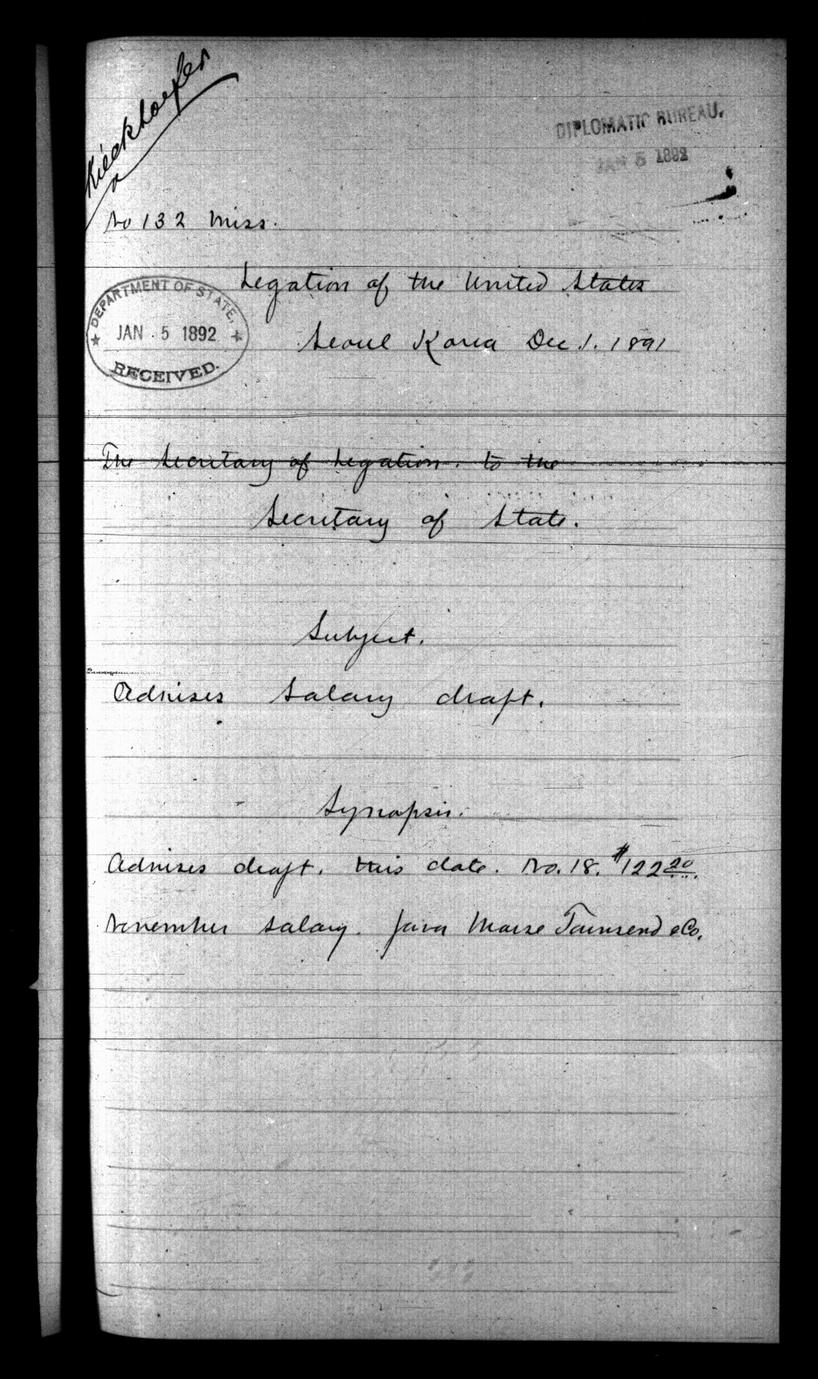 Kieckhoefer
DIPLOMATIC BUREAU.
JAN 5 1892
No 132 Miss.
Legation of the United States
DEPARTMENT OF STATE,
JAN. 5 1892
RECEIVED.
Seoul Korea Dec. 1. 1891
The Secretary of Legation. to the
Secretary of State.
Subject.
Advises Salary draft.
Synopsis.
Advises draft. this date. No. 18. $122 20
November salary. favor Morse Townsend & Co.